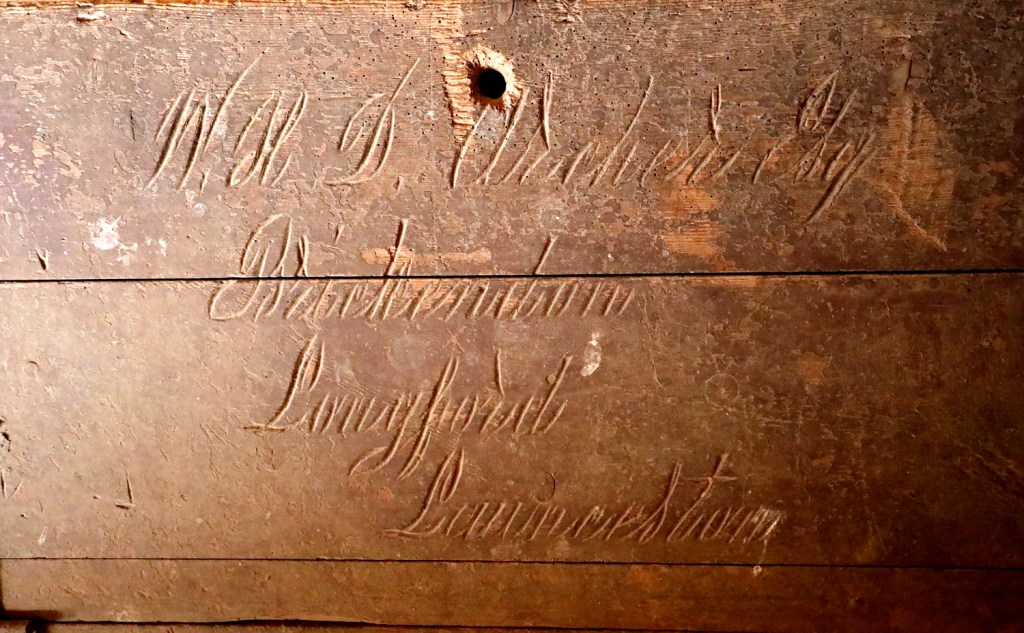 W. H. D. Archer Esq
Brickendon
Longford
Launceston